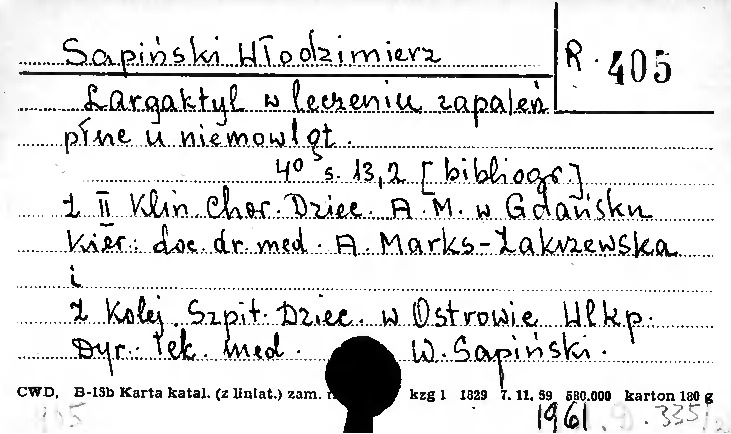 Sapiński Włodzimierz
R. 405
Largaktyl w leczeniu zapaleń
płuc u niemowląt.
4° s. 13,2 [bibliogr.]
Z II Klin. Chor. Dziec. A.M. w Gdańsku
Kier.: doc. dr. med. A. Marks-Zakrzewska
i
Z Kolej. Szpit. Dziec. w Ostrowie Wlkp.
Dyr.: lek. med. W. Sapiński.
CWD, B-15b Karta katal. (z liniat.) zam. kzg 1 1829 7. 11. 59 580.000 karton 180 g
405 1961 9. 335/2